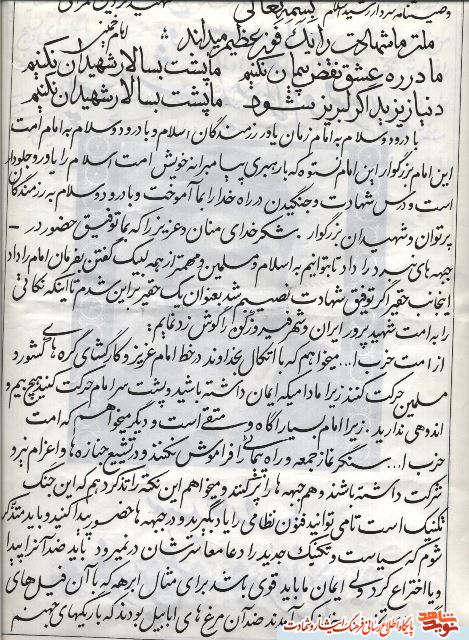 وصیتنامه سردار رشید اسلام بسمه تعالی شهید
ملت ما شهادت را یک فوز عظیم میداند، امام خمینی
ما در ره عشق نقض پیمان نکنیم ما پشت بسالار شهیدان نکنیم
دنیا ز یزید اگر لبریز شود ما پشت بسالار شهیدان نکنیم
با درود و سلام به امام زمان یاور رزمندگان اسلام و با درود و سلام به امام امت
این امام بزرگوار این امام ستوه که با رهبری پیامبرانه خویش امت اسلام را یاور و جلودار
است و درس شهادت و جنگیدن در راه خدا را بما آموخت و با درود و سلام به رزمندگان
پرتوان و شهیدان بزرگوار . بشکر خدای منان و عزیز را که بما توفیق حضور در
جبهه های نبرد را داد تا بتوانم به اسلام و مسلمین و مهمتر از همه لبیک گفتن بفرمان امام را داد
اینجانب حقیر اگر توفیق شهادت نصیبم شد بعنوان یک حقیر بر این شدم تا اینکه نکاتی
را به امت شهید پرور ایران و شهر فیروزکوه را گوش زد نمایم :
از امت حزب ا... میخواهم که با اتکال بخداوند در خط امام عزیز و کارگشای گره های کشور و
مسلمین حرکت کنند زیرا مادامیکه ایمان داشته باشید و پشت سر امام حرکت کنید هیچ بیم و
اندوهی ندارید . زیرا امام بسیار آگاه و متقی است و دیگر میخواهم که امت
حزب ا... سنگر نماز جمعه و راهپیمائی را فراموش نکنند و در تشییع جنازه ها و اعزام نیرو
شرکت داشته باشند و هم جبهه ها را پر کنند و میخواهم این نکته را تذکر دهم که این جنگ
تکنیک است تا می توانید فنون نظامی را یاد بگیرید و در جبهه ها حضور پیدا کنید و باید متذکر
شوم که سیاست و تکنیک جدید را دعا معاشرتشان در نمیرود باید ضد آنرا پیدا
و یا اختراع کرد ولی ایمان ما باید قوی باشد برای مثال ابرهه که با آن فیل های
آمدند ضد آن مرغ های ابابیل بودند که با ریگهای جهنم
شاهد نوید
پایگاه اطلاع رسانی فرهنگ ایثار و شهادت